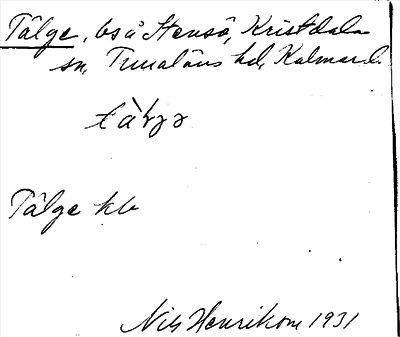 Tälge, bs å Stensö, Kristdala
sn, Tunaläns hd, Kalmar l.
Tälge kb
Nils Henrikson 1931